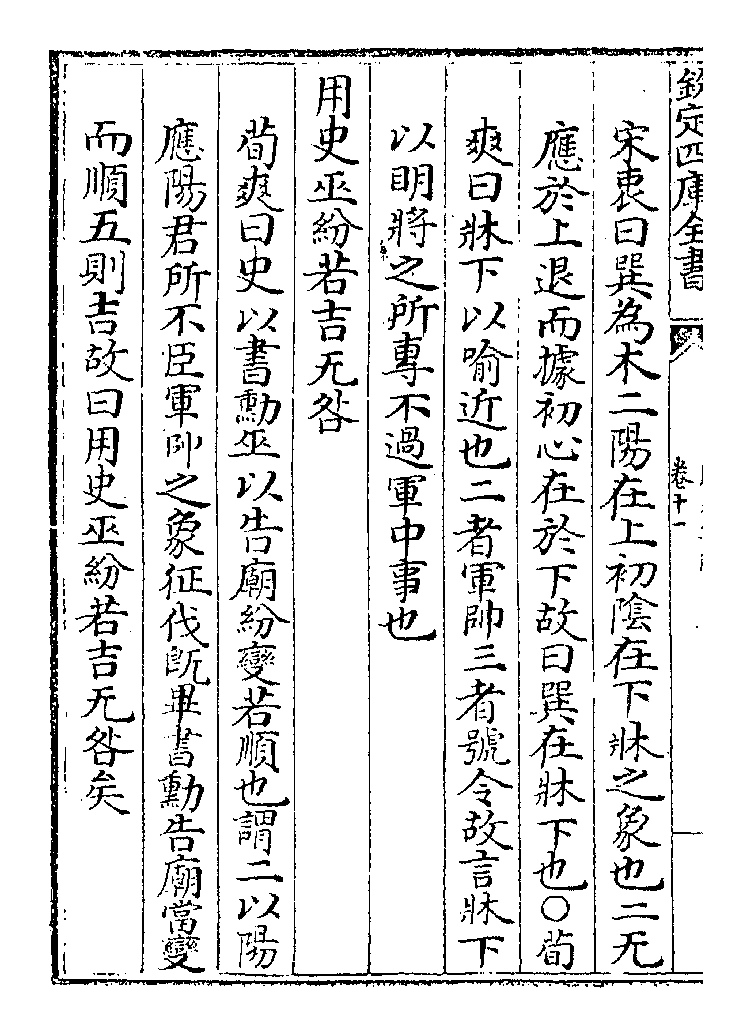 欽定四庫全書
卷十一
宋衷曰巽為木二陽在上初陰在下牀之象也二无
應於上退而據初心在於下故曰巽在牀下也○荀
爽曰牀下以喻近也二者軍帥三者號令故言牀下
以明將之所專不過軍中事也
用史巫紛若吉无咎
荀爽曰史以書勲巫以告廟紛變若順也謂二以陽
應陽君所不臣軍帥之象征伐旣畢書勲告廟當變
而順五則吉故曰用史巫紛若吉无咎矣